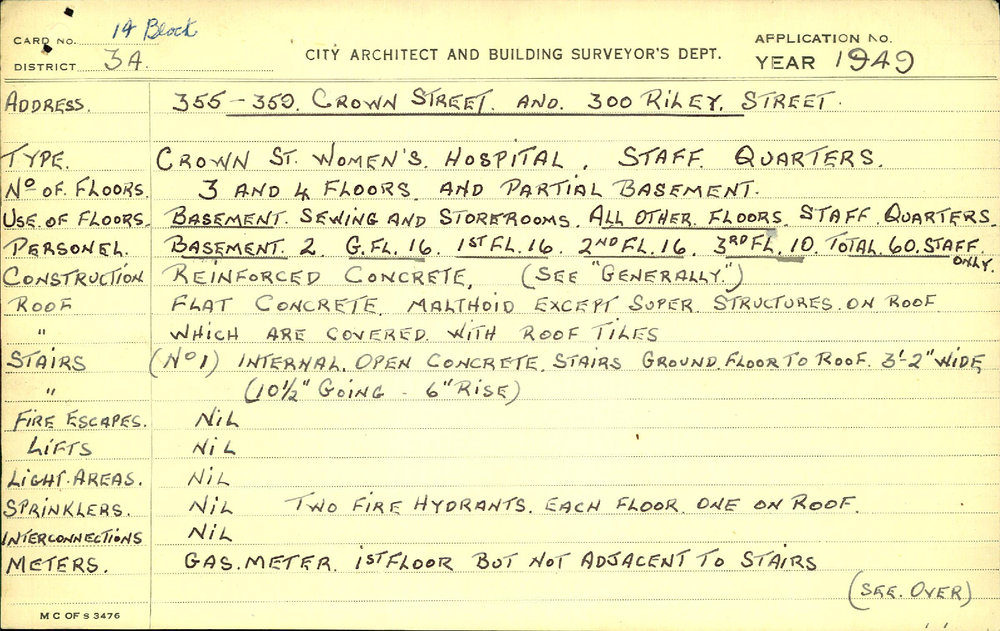 CARD NO. 14 Block
DISTRICT 3A.
CITY ARCHITECT AND BUILDING SURVEYOR'S DEPT.
APPLICATION NO.
YEAR 1949
ADDRESS. 355-359. CROWN STREET. AND. 300 RILEY. STREET.
TYPE. CROWN ST. WOMEN'S. HOSPITAL, STAFF. QUARTERS.
No OF. FLOORS. 3 AND 4 FLOORS. AND PARTIAL BASEMENT.
USE OF FLOORS. BASEMENT. SEWING AND STOREROOMS. ALL OTHER FLOORS. STAFF. QUARTERS.
PERSONEL. BASEMENT. 2. G. FL. 16. 1ST FL. 16. 2ND FL. 16. 3RD FL. 10. TOTAL. 60. STAFF ONLY.
CONSTRUCTION REINFORCED CONCRETE, (SEE "GENERALLY.")
ROOF FLAT CONCRETE. MALTHOID EXCEPT SUPER STRUCTURES. ON ROOF
" WHICH ARE COVERED. WITH ROOF TILES
STAIRS (No 1) INTERNAL. OPEN CONCRETE. STAIRS GROUND. FLOOR TO ROOF. 3'-2" WIDE
" (10½" GOING - 6" RISE)
FIRE ESCAPES. NIL
LIFTS NIL
LIGHT. AREAS. NIL
SPRINKLERS. NIL TWO FIRE HYDRANTS. EACH FLOOR. ONE ON ROOF.
INTERCONNECTIONS NIL
METERS. GAS. METER. 1ST FLOOR BUT NOT ADJACENT TO STAIRS
(SEE. OVER)
M C OF S 3476